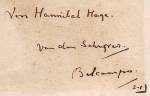 Voor Hannibal Hage.
van den Schrijver
Belcampo